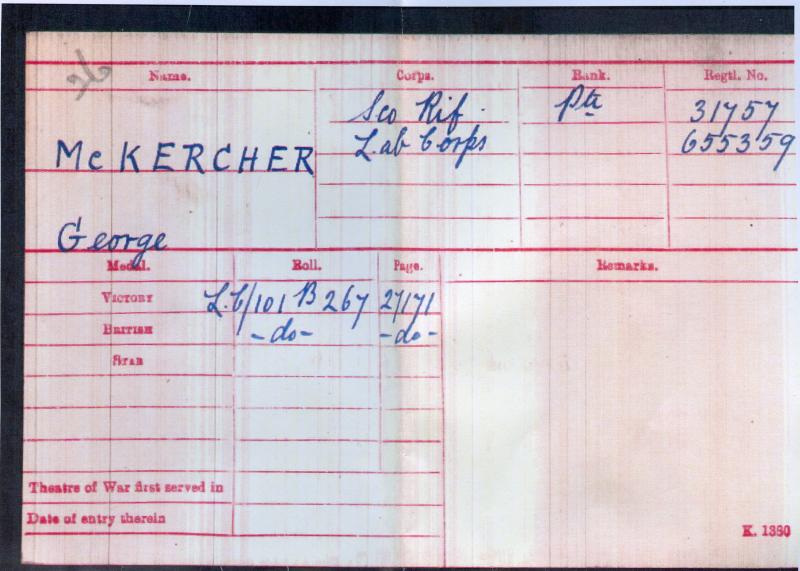 Name. Corps. Rank. Regtl. No.
Sco Rif. Pte 31757
McKERCHER Lab Corps 655359
George
Medal. Roll. Page. Remarks.
VICTORY L.C/101 B 267 27171
BRITISH -do- -do-
STAR
Theatre of War first served in
Date of entry therein
K. 1380